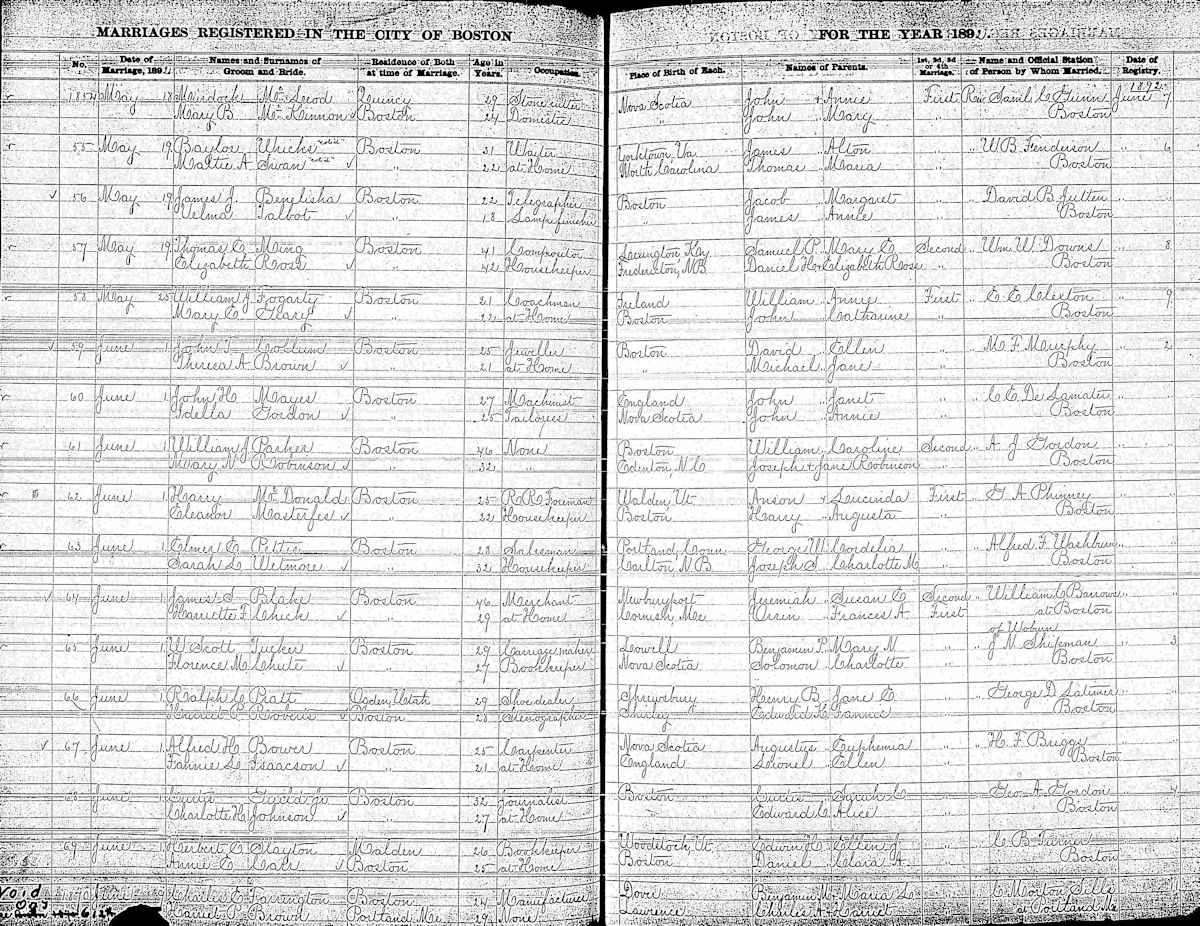 MARRIAGES REGISTERED IN THE CITY OF BOSTON
FOR THE YEAR 189
No. Date of Marriage, 189 Names and Surnames of Groom and Bride. Residence of Both at time of Marriage. Age in Years. Occupation. Place of Birth of Each. Names of Parents. 1st, 2d, 3d or 4th Marriage. Name and Official Station of Person by Whom Married. Date of Registry.
1892
1854 May 18 Murdock McLeod Quincy 29 Stonecutter Nova Scotia John + Annie First Rev. Saml. C. Gunn June 7
Mary B McKinnon Boston 24 Domestic " John " Mary " Boston
55 May 19 Baylor Whicks Boston 31 Waiter Yorktown, Va James " Alton " W B Fenderson " 6
Mattie A Swan " 22 at Home North Carolina Thomas " Maria " Boston
56 May 19 James J. Benelisha Boston 22 Telegrapher Boston Jacob " Margaret " David B Jutten "
Velma Talbot " 18 Lamp finisher " James " Annie " Boston
57 May 19 Thomas C Ming Boston 41 Compositor Lexington, Ky Samuel P. " Mary E Second " Wm. W Downs " 8
Elizabeth Rose " 42 Housekeeper Fredericton, N.B Daniel H + Elizabeth Rose " Boston
58 May 25 William J Fogarty Boston 21 Coachman Ireland William " Annie First " E E Clexton " 9
Mary C Geary " 22 at Home Boston John " Catharine " Boston
59 June 1 John T. Collum Boston 25 Jeweller Boston David " Ellen " M. F. Murphy " 2
Theresa A Brown " 21 at Home " Michael " Jane " Boston
60 June 1 John H Mayer Boston 27 Machinist England John " Janet " C E De Lamater "
Idella Gordon " 25 Tailoress Nova Scotia John " Annie " Boston
61 June 1 William J Parker Boston 46 None Boston William " Caroline Second " A. J Gordon "
Mary N Robinson " 32 " Edenton, N.C Joseph + Jane Robinson " Boston
62 June 1 Harry McDonald Boston 25 R.R. Foreman Walden, Vt Anson + Lucinda First " G A Phinney "
Eleanor " 22 Housekeeper Boston Harry " Augusta " Boston
63 June 1 Elmer E Pettis Boston 28 Salesman Portland, Conn. George W. " Cordelia " Alfred F Washburn "
Sarah L Wetmore " 32 Housekeeper Carlton, N.B Joseph S. " Charlotte M " Boston
64 June 1 James F. Blake Boston 46 Merchant Newburyport Jeremiah " Susan C Second " William C Barrows "
Harriette F Chick " 29 at Home Cornish, Me Orrin " Frances A. First at Boston
of Woburn
65 June 1 W Scott Tucker Boston 29 Carriage maker Lowell Benjamin P. " Mary N " J. N Shipman " 3
Florence M Chute " 27 Bookkeeper Nova Scotia Solomon " Charlotte " Boston
66 June 1 Ralph C Pratt Ogden, Utah 29 Shoe dealer Shrewsbury Henry B. " Jane C " George D Latimer "
Harriet P Roberts Boston 28 Stenographer Shirley Edward H. " Fannie " Boston
67 June 1 Alfred H Bower Boston 25 Carpenter Nova Scotia Augustus " Euphemia " H. F Briggs "
Fannie L. Isaacson " 21 at Home England Lionel " Ellen " Boston
68 June 1 Curtis Guild Jr Boston 32 Journalist Boston Curtis " Sarah C " Geo. A. Gordon " 4
Charlotte H Johnson " 27 at Home " Edward C " Alice " Boston
69 June 1 Herbert C Slayton Malden 26 Bookkeeper Woodstock, Vt Edwin H. " Ellen J " C B "
Annie E Carr Boston 25 at Home Boston Daniel " Clara A. " Boston
Void 1870 June 1 Charles E Farrington Boston 24 Manufacturer Dover Benjamin N. + Maria L " C. Morton Sills "
Harriet P. Brown Portland Me 29 None Lawrence Charles A + Harriet " at Portland Me